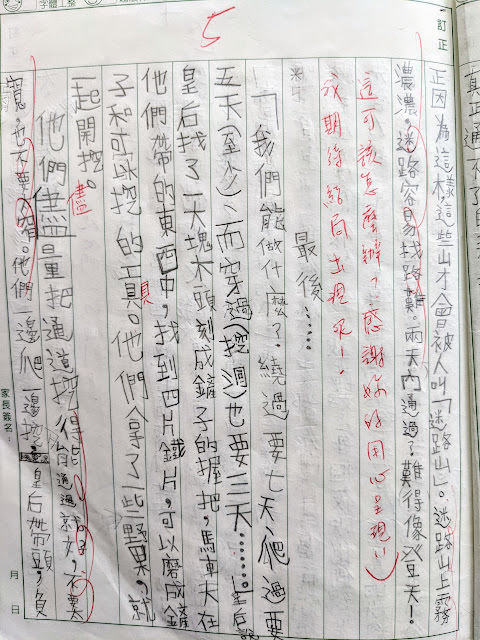 字體工整
5
訂正
正因為這樣,這些山才會被人叫「迷路山」。迷路山上霧
濃濃,迷路容易找路難。兩天內通過?難得像登天!
這可該怎麼辦?感謝妳的用心呈現!
期待結局出現呢!
最後……
「我們能做什麼?繞過要七天、爬過要
五天(至少)、而穿過(挖洞)也要三天……」皇后說
皇后找了一大塊木頭刻成鏟子的握把,馬車夫在
他們帶的東西中,找到四片鐵片,可以磨成鏟
子和可以挖的工具。他們拿了一些野果,就
一起開挖。
他們儘量把通道挖得能通過就好,不要
儘
寬,也不要窄。他們一邊爬一邊挖,皇后帶頭,負
家長簽名:
月
日